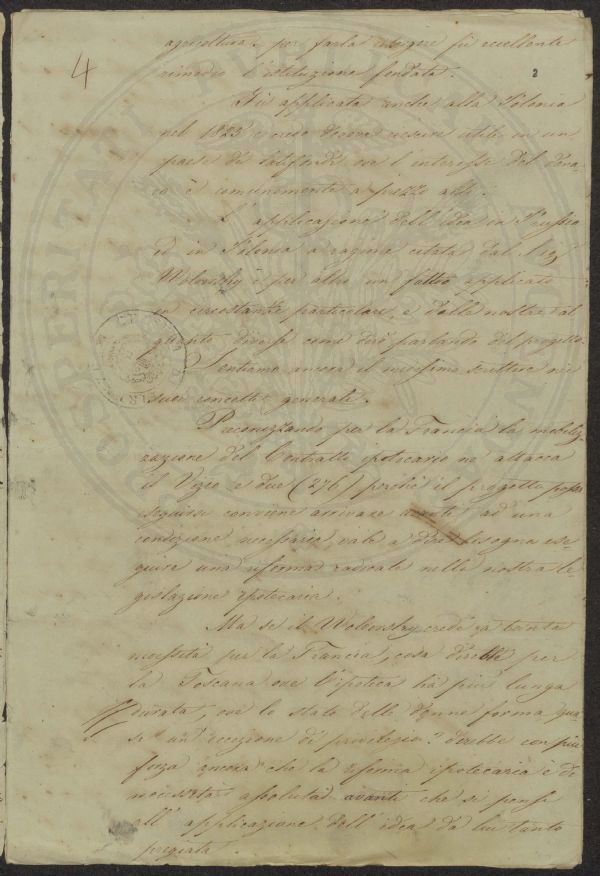 4
2
agricoltura. per farla
rimedio l'istituzione fondata.
applicata anche alla Polonia
nel 1825 e credo dovere essere utile in un
paese di latifondi ove l'interesse del dena-
ro è comunemente a prezzo alto.
L'applicazione dell'idea in Prussia
ed in Polonia a ragione citata dal Sig
Wolowsky è per altro un fatto applicato
in circostanze particolari, e dalle nostre al
quanto diverse come dirò parlando del progetto.
Sentiamo ancora il medesimo scrittore nei
suoi concetti generali.
Preconizzando per la Francia la mobiliz-
zazione del Contratto ipotecario ne attacca
il Vizio e dice (276) perchè il progetto possa
eseguirsi conviene arrivare avanti ad una
condizione necessaria, vale a dire bisogna ese-
guire una riforma radicale nella nostra le-
gislazione ipotecaria.
Ma se il Wolowsky crede ciò
necessità per la Francia, cosa direbbe per
la Toscana ove l'ipoteca ha più lunga
durata, ove lo stato delle donne forma qua
se un'eccezione di privilegio? direbbe con più
forza ancora che la riforma ipotecaria è di
necessità assoluta avanti che si pensi
all'applicazione dell'idea da lui tanto
pregiata.